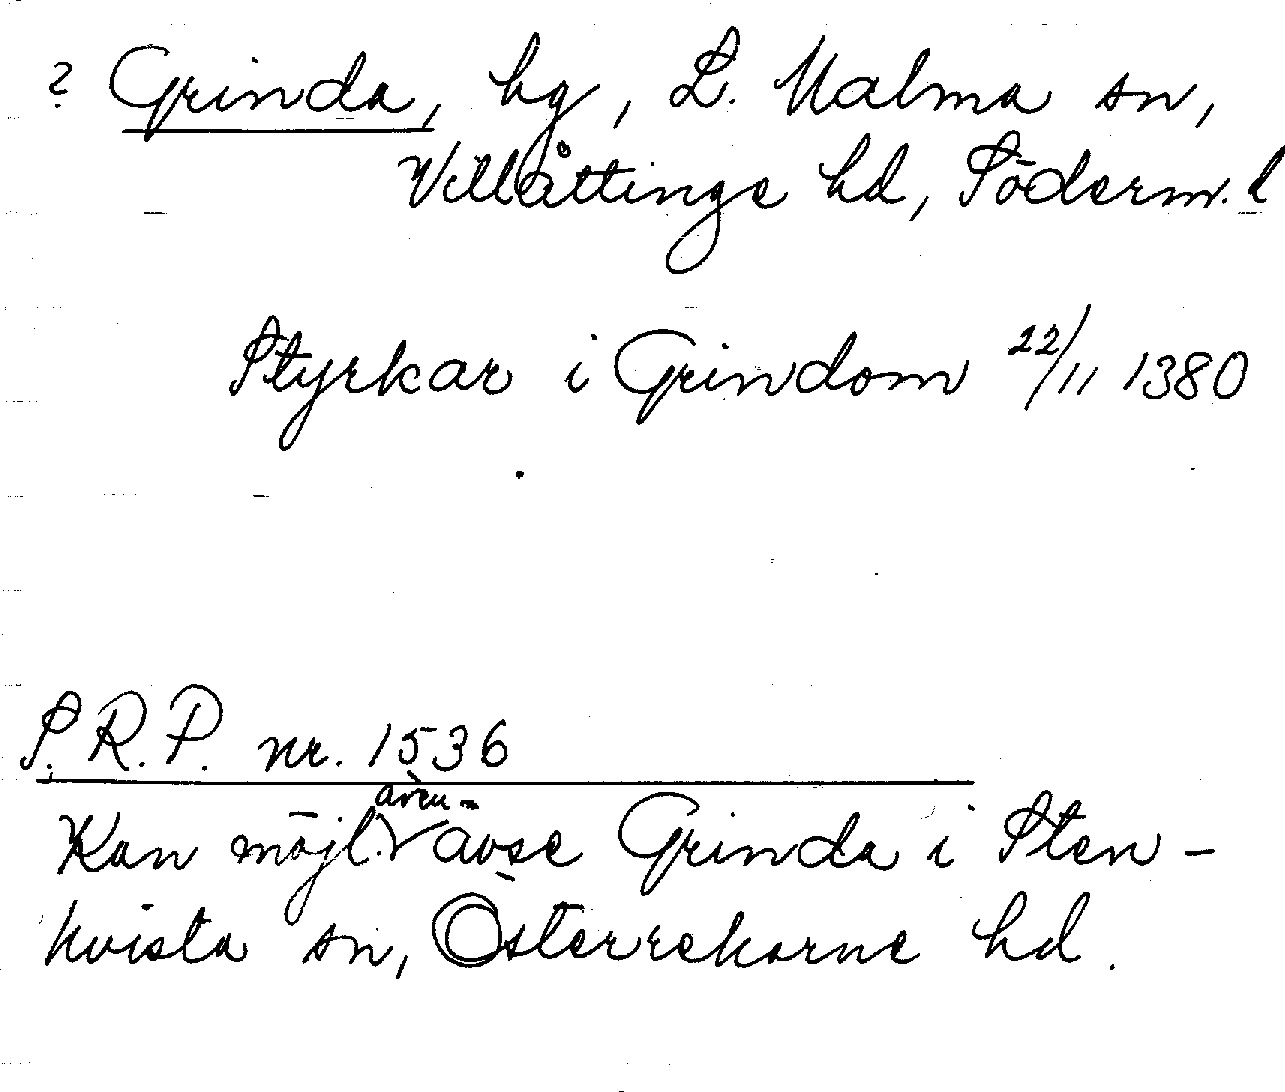 ? Grinda, by, L. Malma sn,
Villåttinge hd, Söderm. l
Styrkar i Grindom 22/11 1380
S.R.P. nr. 1536
Kan möjl. även avse Grinda i Sten-
kvista sn, Österrekarne hd.